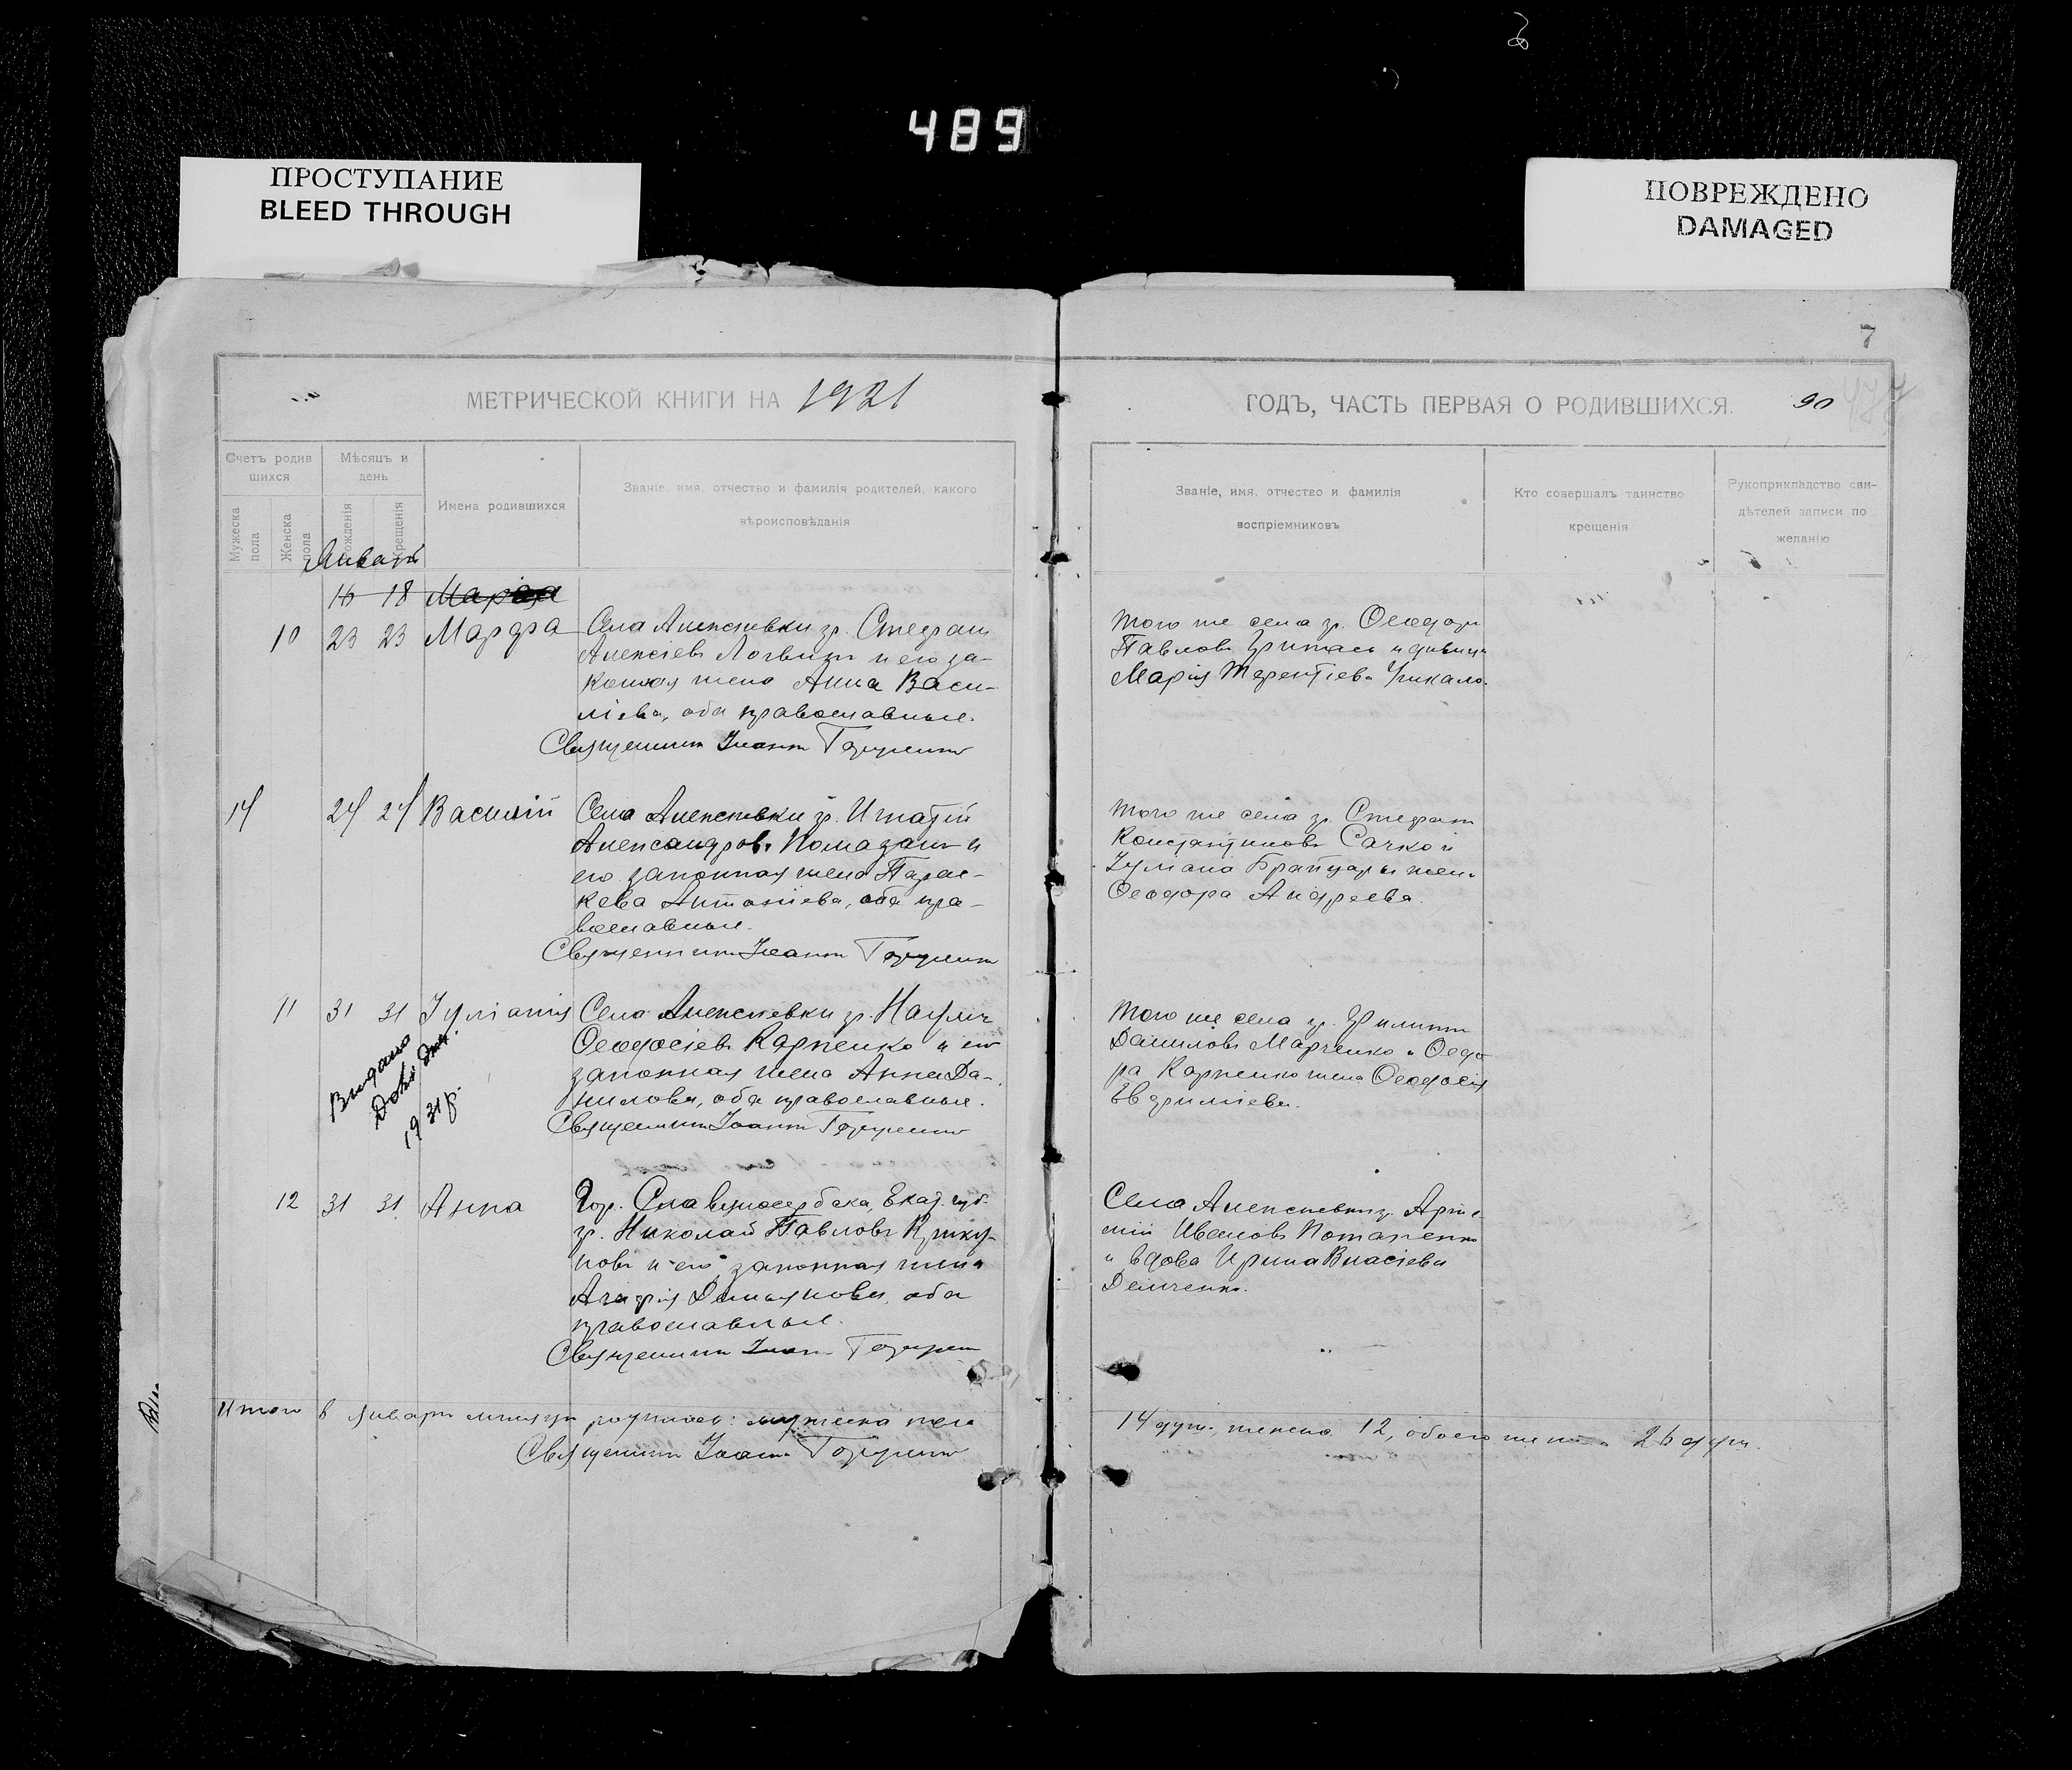 489
ПРОСТУПАНИЕ
BLEED THROUGH
ПОВРЕЖДЕНО
DAMAGED
7
МЕТРИЧЕСКОЙ КНИГИ НА 1921
ГОДЪ, ЧАСТЬ ПЕРВАЯ О РОДИВШИХСЯ.
90
477
Счетъ родив
шихся
Мужеска пола
Женска пола
Мѣсяцъ и
день
Рожденія
Крещенія
Имена родившихся
Званіе, имя, отчество и фамилія родителей, какого
вѣроисповѣданія
Званіе, имя, отчество и фамилія
воспріемниковъ
Кто совершалъ таинство
крещенія
Рукоприкладство сви-
дѣтелей записи по
желанію
Январь
16 18 Марія
10 23 23 Марфа Села Алексѣевки гр. Стефан
Алексіевъ Логвин и его за-
конная жена Анна Васи-
ліева, оба православные.
Священник Іоанн
того же села гр. Ѳеодор
Павловъ и девица
Марія Терентіева
14 24 24 Василій Села Алексѣевки гр. Игнатій
Александровъ Помазан и
его законная жена Парас-
кева Антоніева, оба пра-
вославные.
Священник Іоанн
того же села гр. Стефан
Константиновъ Сачко и
Іуліана жена
Ѳеодора Андреева.
11 31 31 Іуліанія Села Алексѣевки гр. Наум
Ѳеодосіевъ Карпенко и его
законная жена Анна Да-
нилова, оба православные.
Священник Іоанн
Видано
1931 р.
того же села гр. Филипп
Даниловъ Марченко и Ѳедо-
ра Карпенко жена Ѳеодосія
12 31 31 Анна Гор. Славяносербска, Екат. губ.
гр. Николай Павловъ
новъ и его законная жена
Демьянова, оба
православные.
Священник Іоан
Села Алексѣевки гр. Арте-
мій Ивановъ Потапенко
и вдова Ирина Власіева
Демченко.
Итого в Январе месяце родилось: мужеска пола
14 душ. женска 12, обоего же пола 26 душ.
Священник Іоанн